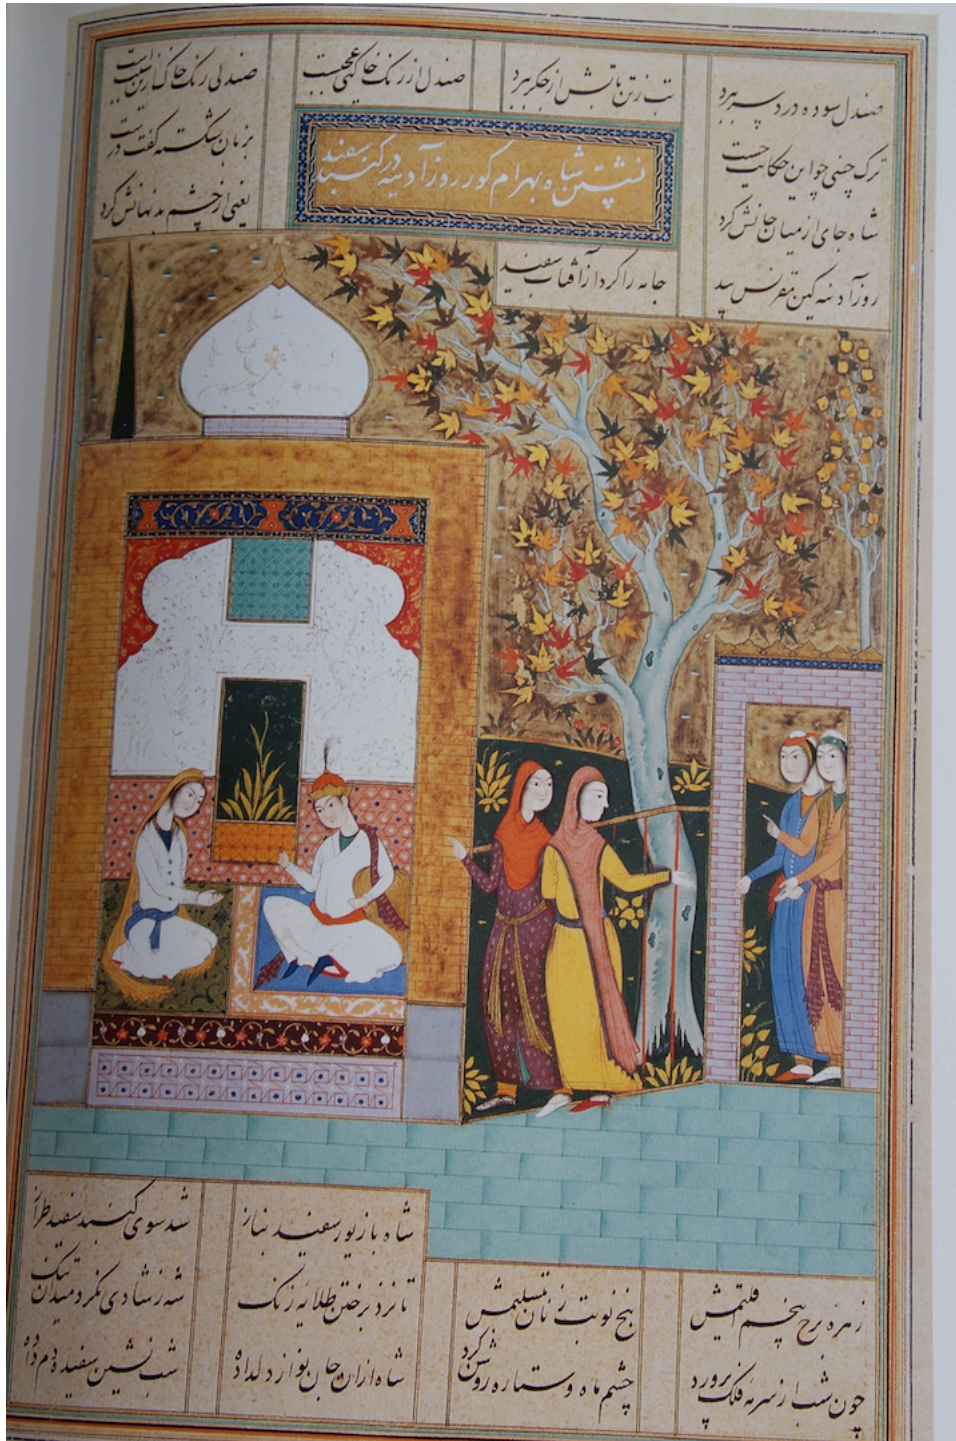 صندل سوده درد سر ببرد تب ز تن تابش از جکر ببرد صندل از رنک عجبست صندلی رنک خاک ازین سببست
ترک چینی چو این حکایت چست بزبان شکسته کفت درست
شاه جای از میان جانش کرد یعنی از چشم بد نهانش کرد
نشستن شاه بهرام کور روز آدینه در کنبد سفید
روز آدینه کین مقرنس بید خانه را کرد از آفتاب سفید
شاه با زیور سفید بناز شد سوی کنبد سفید طراز
زهره بر برج پنجم اقلیمش پنج نوبت زنان تسلیمش تا نزد بر ختن طلایه زنک شه ز شادی نکرد میدان تنک
چون شب از سرمه فلک پرورد چشم ماه و ستاره روشن کرد شاه ازان جان نواز دلداده شب نشین سفیده دم داده